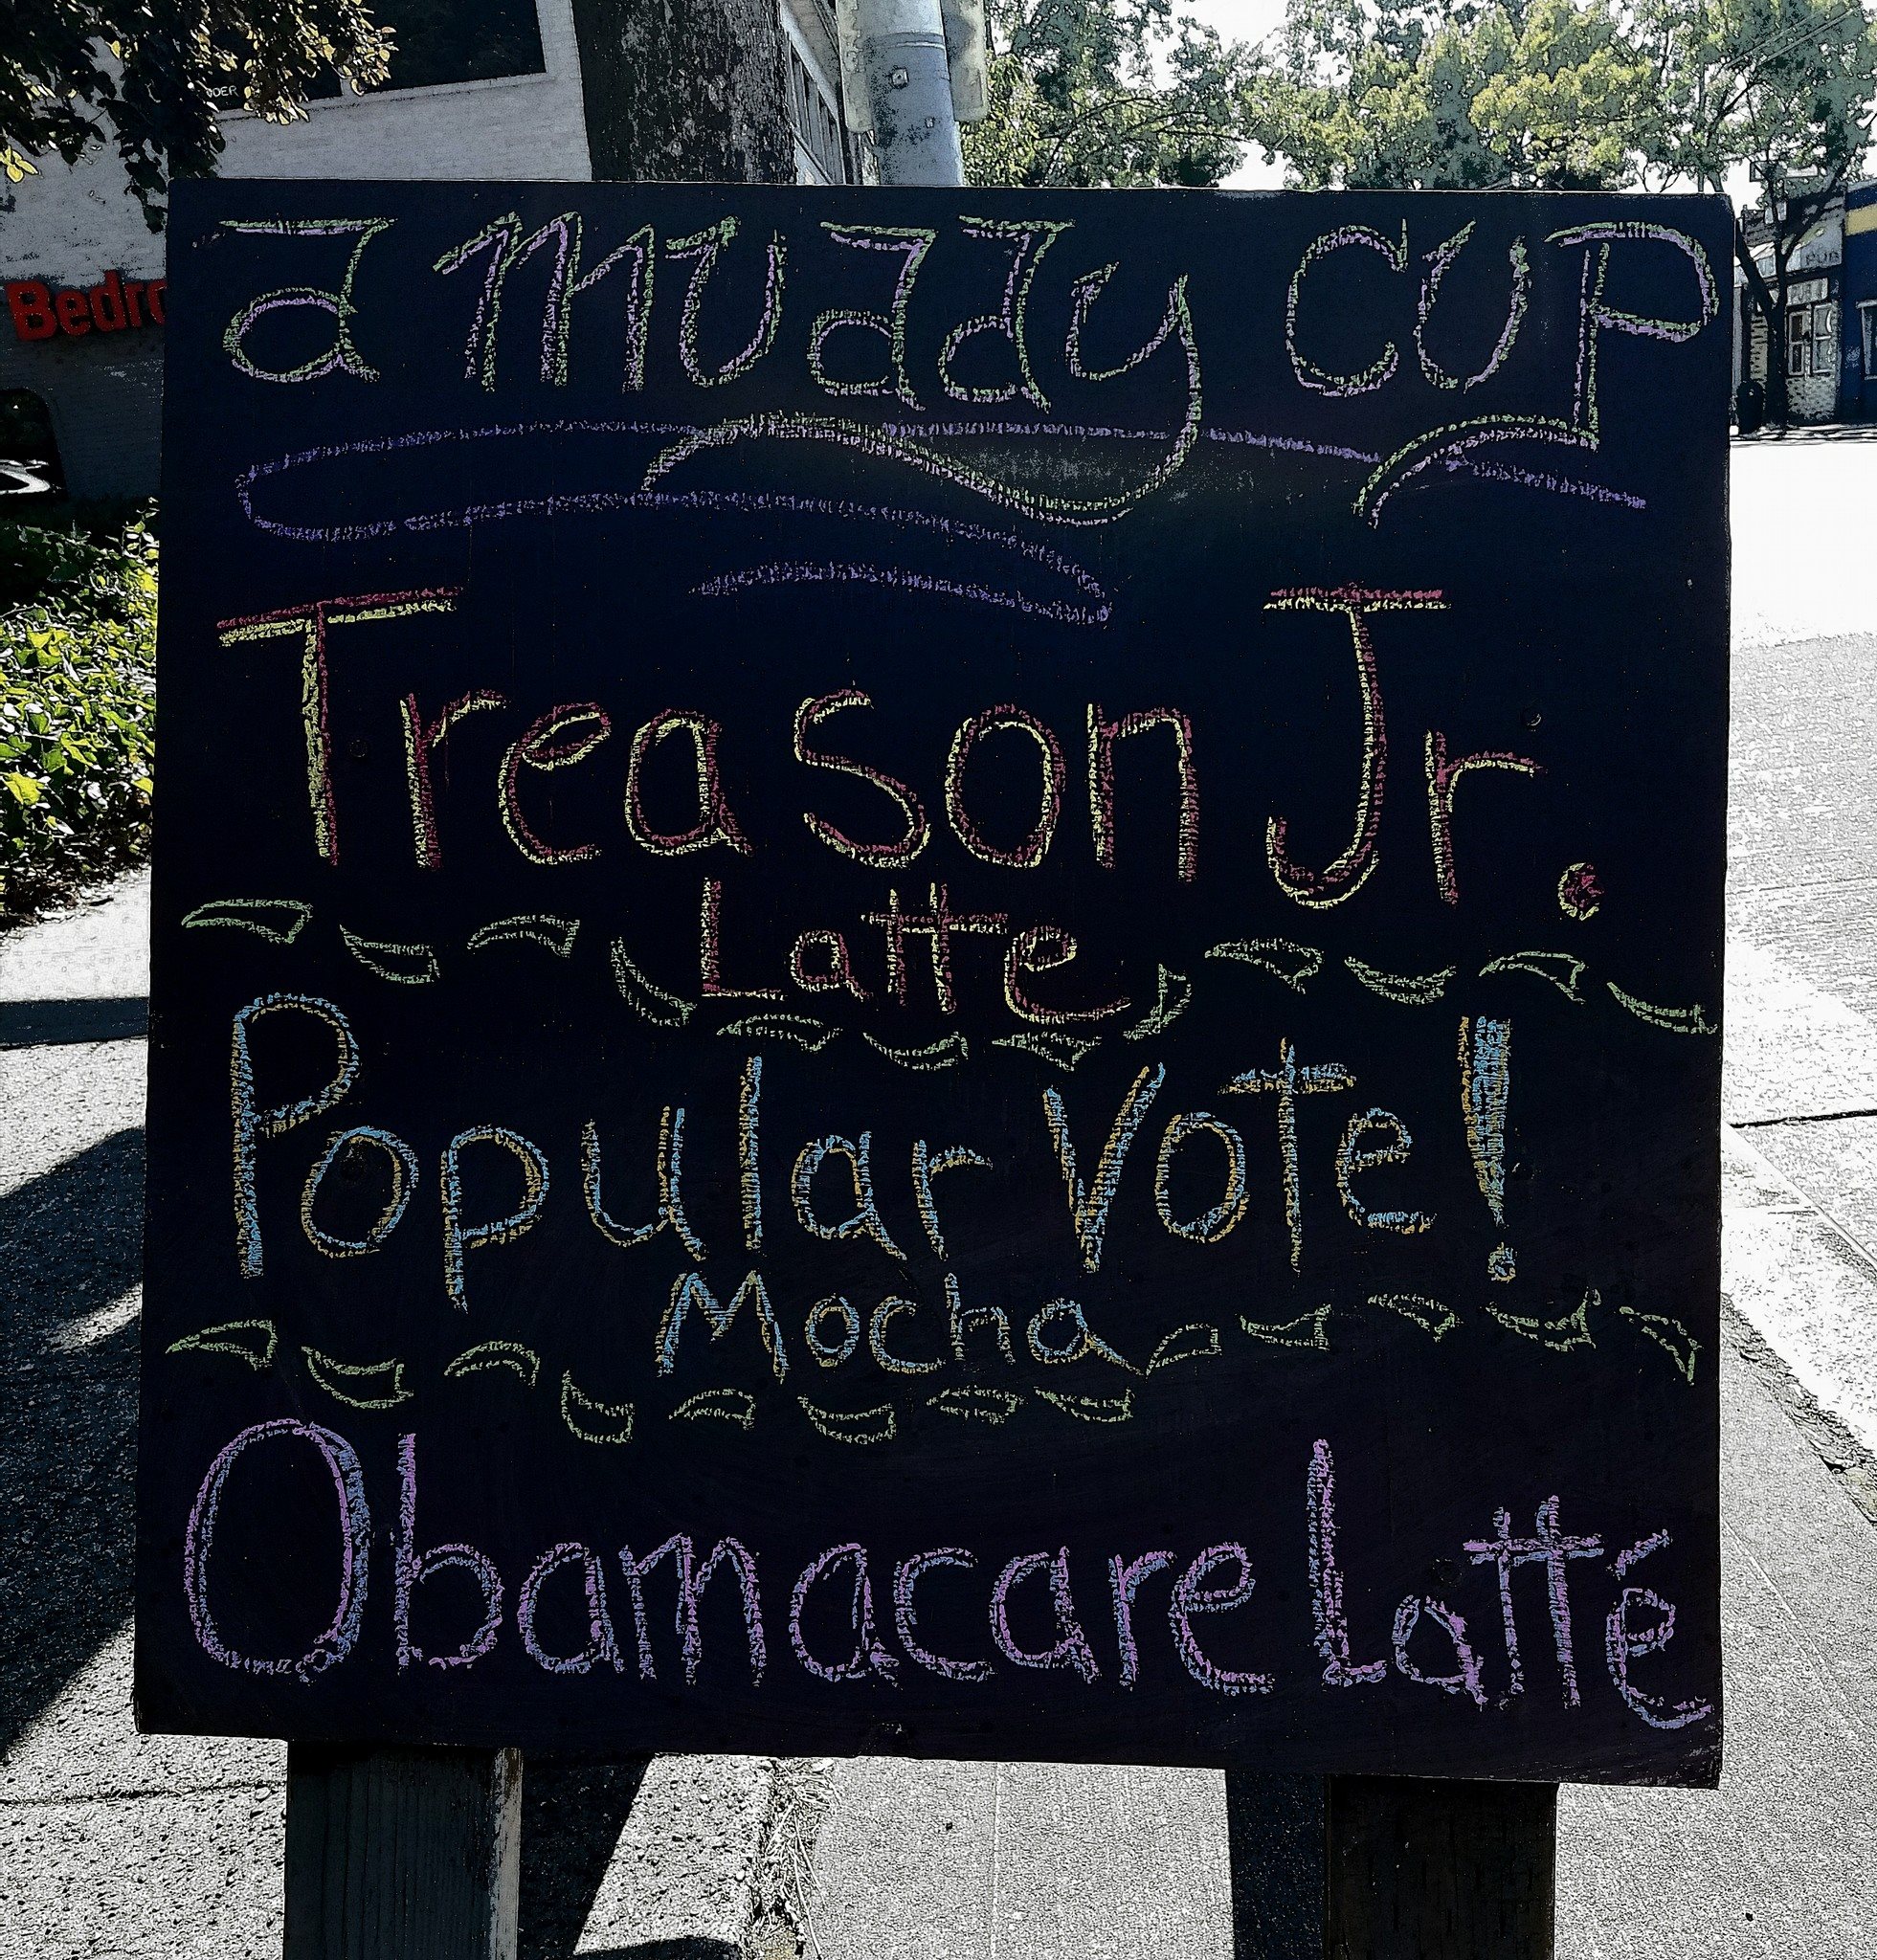 a muddy cup
Treason Jr.
Latte
Popular Vote!
Mocha
Obamacare Latte
Bedro
PUB